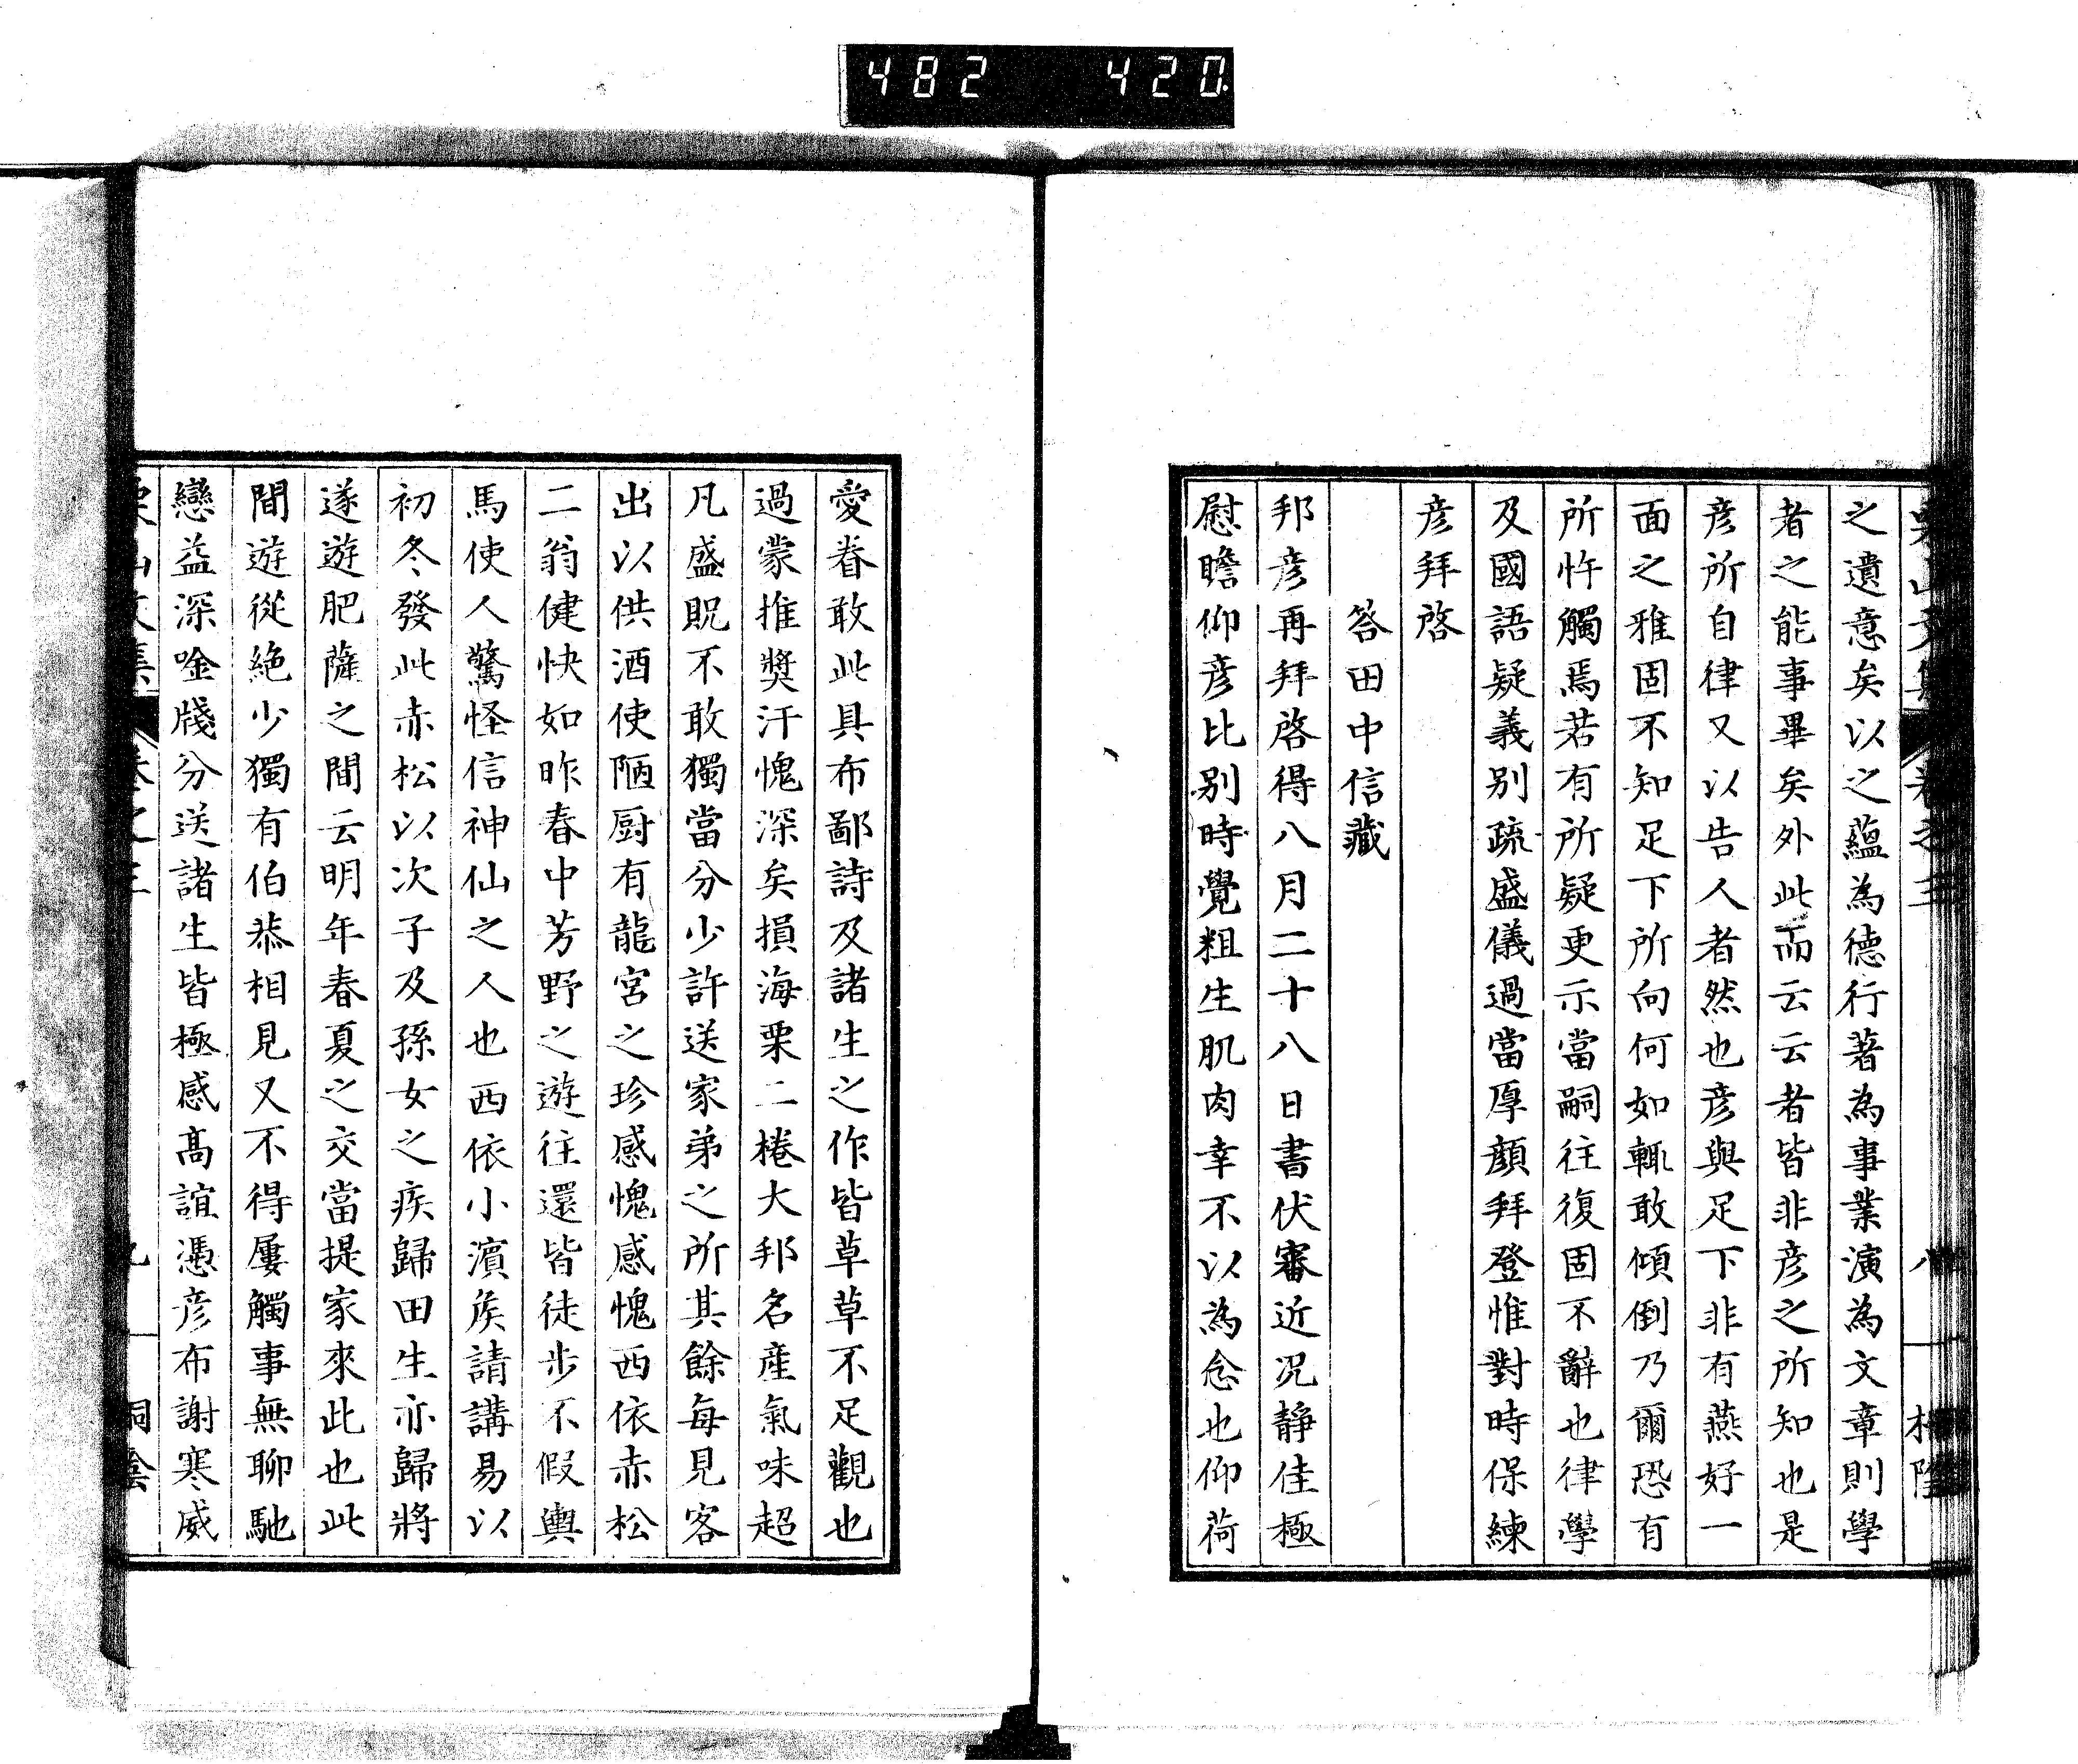 482 420
之遺意矣以之蘊為德行著為事業演為文章則學
者之能事畢矣外此而云云者皆非彦之所知也是
彦所自律又以告人者然也彦與足下非有燕好一
面之雅固不知足下所向何如輒敢傾倒乃爾恐有
所忤觸焉若有所疑更示當嗣往復固不辭也律學
及國語疑義別疏盛儀過當厚顔拜登惟對時保練
彦拜啓
答田中信藏
邦彦再拜啓得八月二十八日書伏審近况靜佳極
慰瞻仰彦比別時覺粗生肌肉幸不以為念也仰荷
愛眷敢此具布鄙詩及諸生之作皆草草不足觀也
過蒙推奬汗愧深矣損海栗二棬大邦名産氣味超
凡盛貺不敢獨當分少許送家弟之所其餘每見客
出以供酒使陋厨有龍宮之珍感愧感愧西依赤松
二翁健快如昨春中芳野之遊往還皆徒步不假輿
馬使人驚怪信神仙之人也西依小濵矦請講易以
初冬發此赤松以次子及孫女之疾歸田生亦歸將
遂遊肥薩之間云明年春夏之交當提家來此也此
間遊從絶少獨有伯恭相見又不得屢觸事無聊馳
戀益深唫牋分送諸生皆極感髙誼憑彦布謝寒威